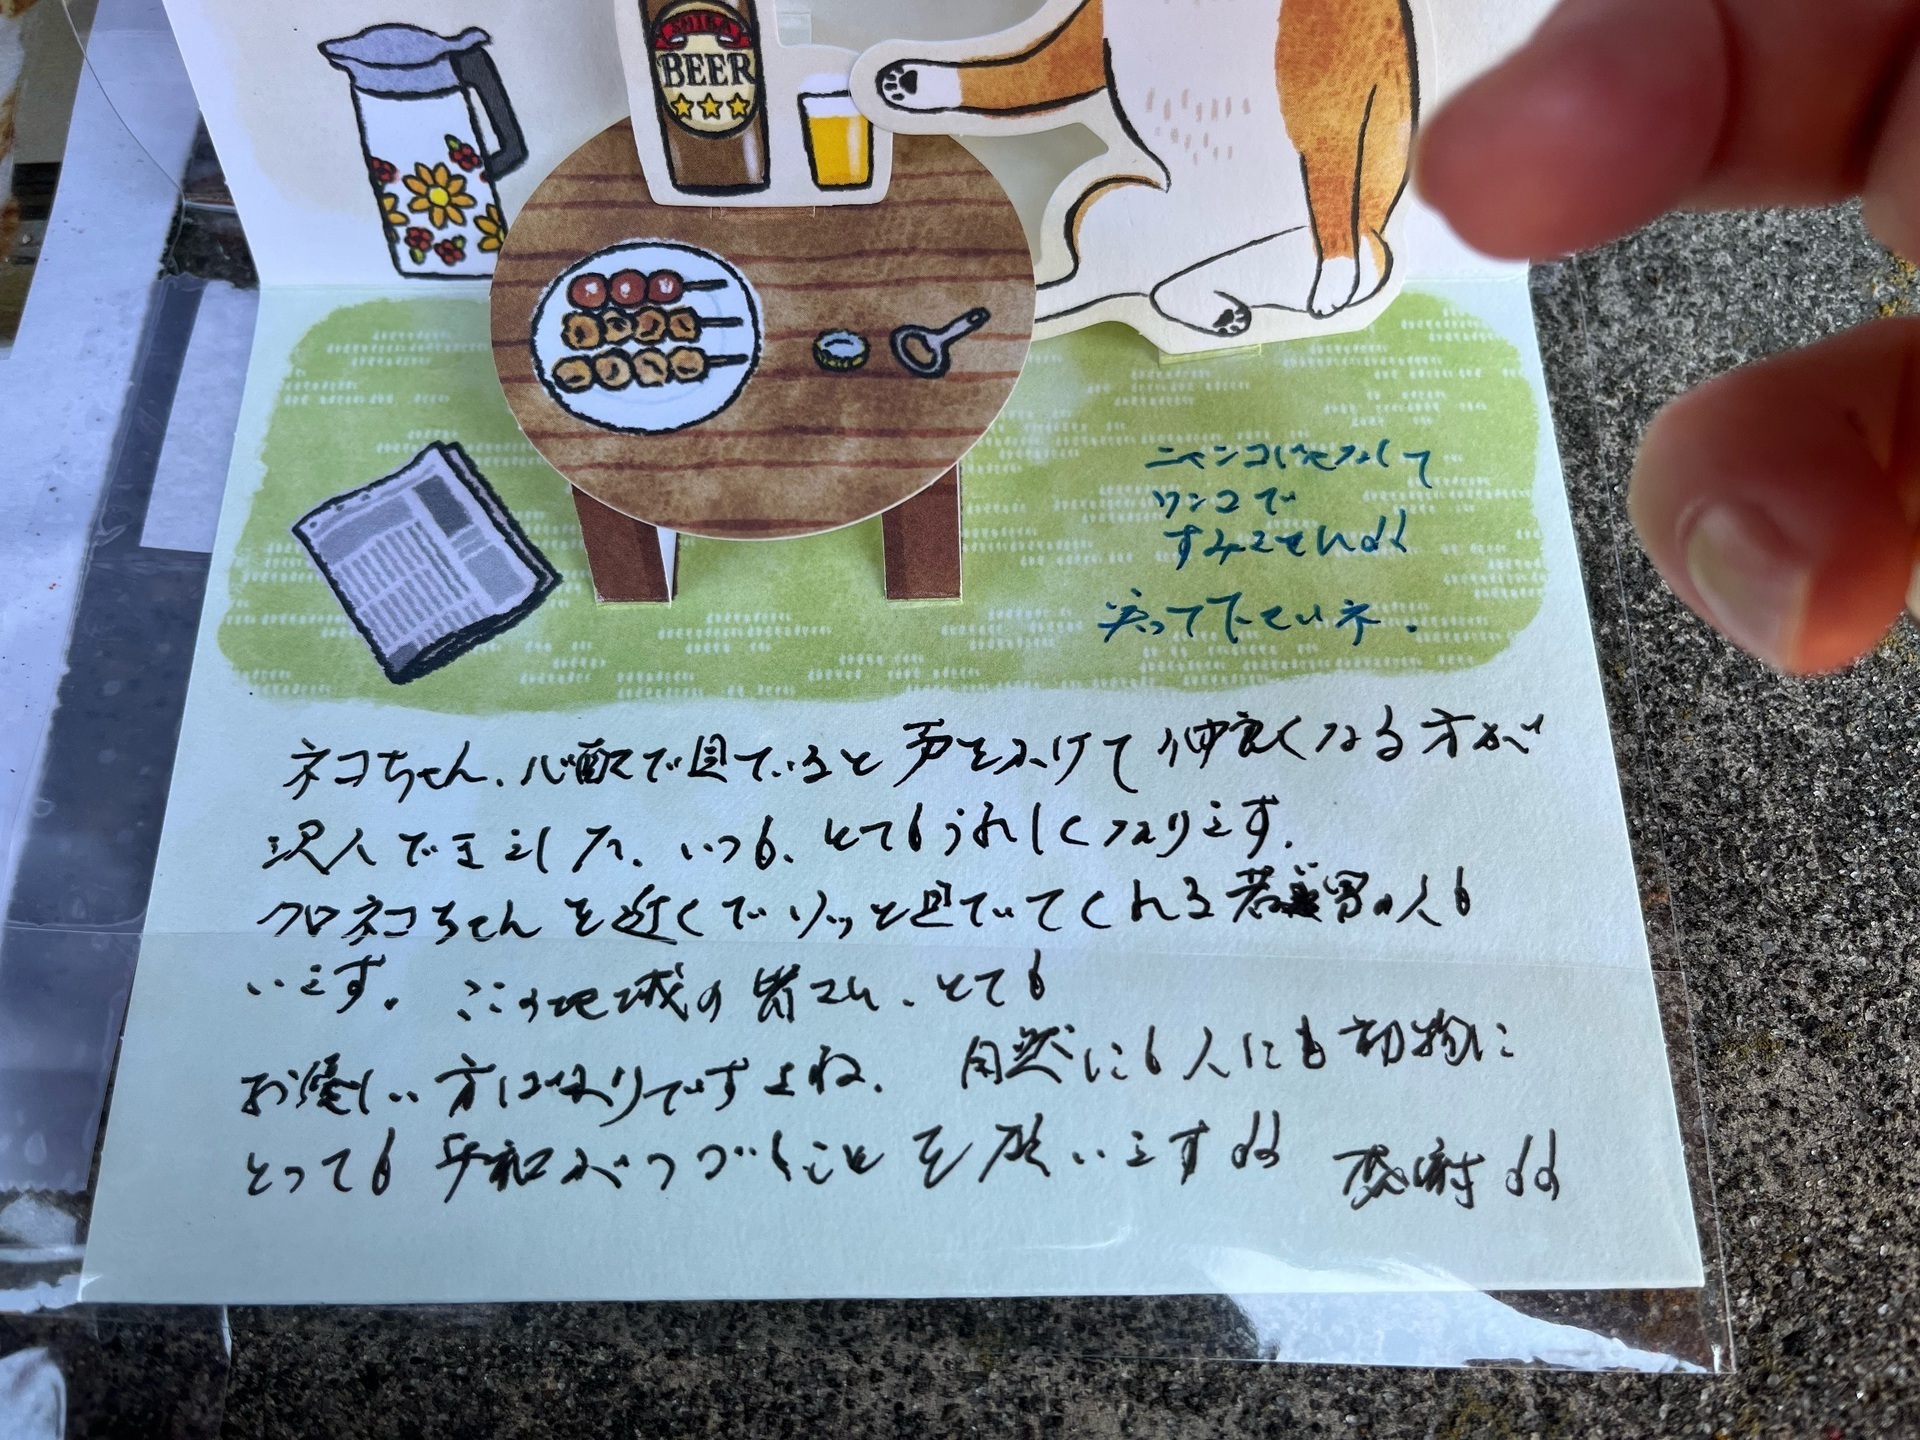 SHIBA
BEER
ニャンコじゃなくて
ワンコで
すみません
笑って下さいネ.
ネコちゃん、心配で見ていると声をかけて仲良くなる方が
沢人できました、いつも、とてもうれしくなります.
クロネコちゃんを近くでソッと見ていてくれる若い男の人も
います。この地域の皆さん、とても
お優しい方ばかりですよね、自然にも人にも動物に
とっても平和がつづくことを願います 感謝